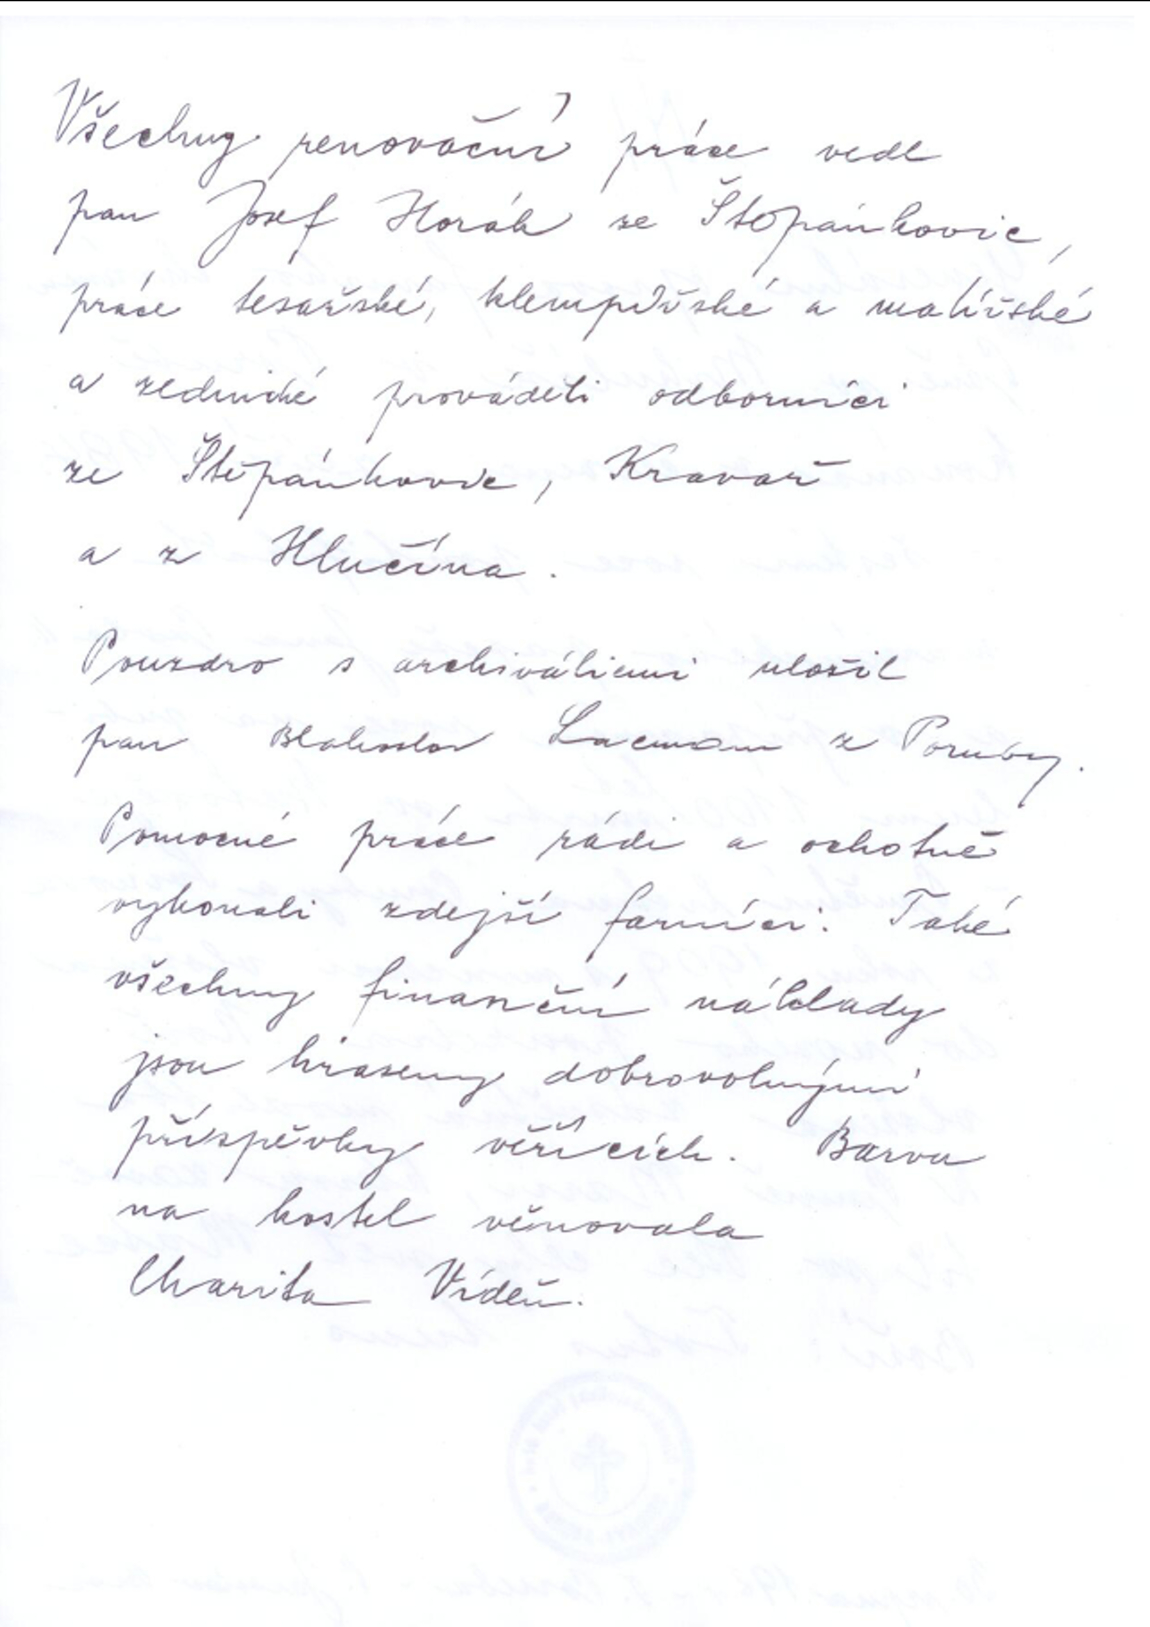 Všechny renovační práce vedl
pan Josef Horák ze Štěpánkovic,
práce tesařské, klempířské a malířské
a zednické prováděli odborníci
ze Štěpánkovic, Kravař
a z Hlučína.
Pouzdro s archiváliemi uložil
pan Blahoslav z Poruby.
Pomocné práce rádi a ochotně
vykonali zdejší farníci. Také
všechny finanční náklady
jsou hrazeny dobrovolnými
příspěvky věřících. Barvu
na kostel věnovala
Charita Vídeň.